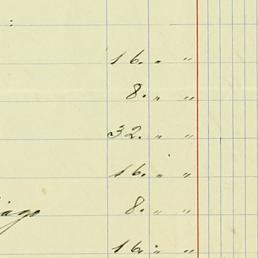 :
16. " "
8. " "
32. " "
16. " "
8. " "
16. " "